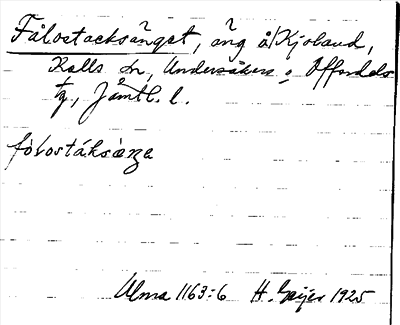 Fålostacksänget, äng å Kjoland,
Kalls sn, Undersåkers o. Offerdals
tg, Jämtl. l.
fòlostáksàŋa
Ulma 1163:6 H. Geijer 1925